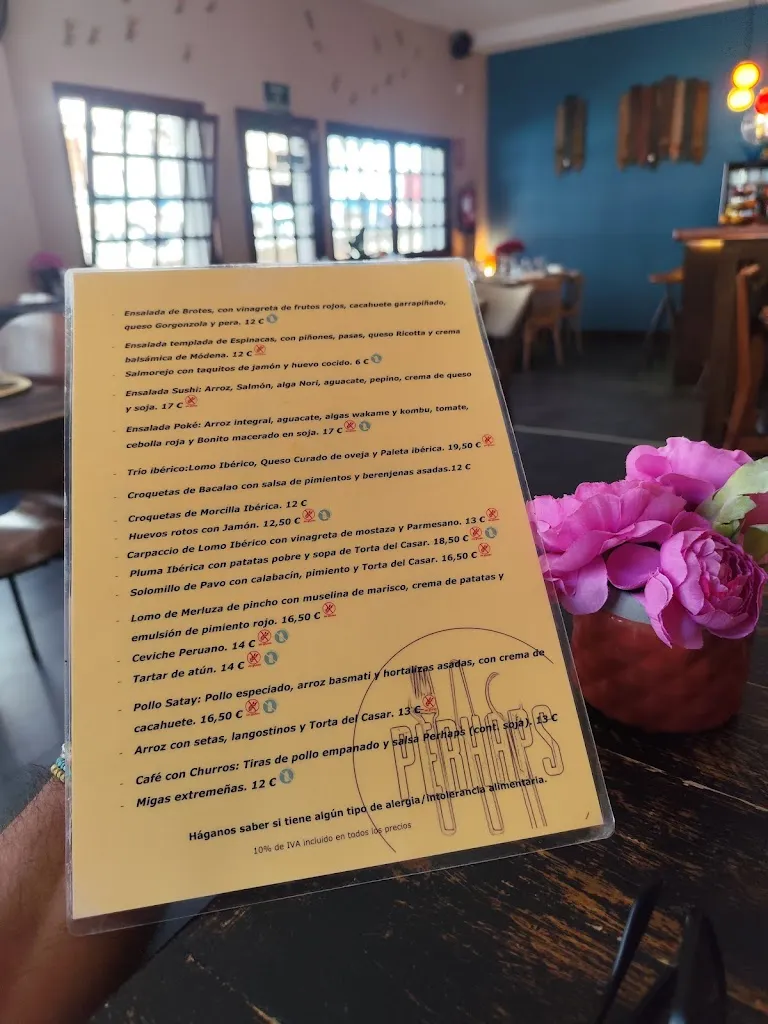 - Ensalada de Brotes, con vinagreta de frutos rojos, cacahuete garrapiñado,
queso Gorgonzola y pera. 12 €
- Ensalada templada de Espinacas, con piñones, pasas, queso Ricotta y crema
balsámica de Módena. 12 €
- Salmorejo con taquitos de jamón y huevo cocido. 6 €
- Ensalada Sushi: Arroz, Salmón, alga Nori, aguacate, pepino, crema de queso
y soja. 17 €
- Ensalada Poké: Arroz integral, aguacate, algas wakame y kombu, tomate,
cebolla roja y Bonito macerado en soja. 17 €
- Trío ibérico:Lomo Ibérico, Queso Curado de oveja y Paleta ibérica. 19,50 €
- Croquetas de Bacalao con salsa de pimientos y berenjenas asadas.12 €
- Croquetas de Morcilla Ibérica. 12 €
- Huevos rotos con Jamón. 12,50 €
- Carpaccio de Lomo Ibérico con vinagreta de mostaza y Parmesano. 13 €
- Pluma Ibérica con patatas pobre y sopa de Torta del Casar. 18,50 €
- Solomillo de Pavo con calabacín, pimiento y Torta del Casar. 16,50 €
- Lomo de Merluza de pincho con muselina de marisco, crema de patatas y
emulsión de pimiento rojo. 16,50 €
- Ceviche Peruano. 14 €
- Tartar de atún. 14 €
- Pollo Satay: Pollo especiado, arroz basmati y hortalizas asadas, con crema de
cacahuete. 16,50 €
- Arroz con setas, langostinos y Torta del Casar. 13 €
- Café con Churros: Tiras de pollo empanado y salsa Perhaps (cont. soja). 13 €
- Migas extremeñas. 12 €
PERHAPS
Háganos saber si tiene algún tipo de alergia/intolerancia alimentaria.
10% de IVA incluido en todos los precios